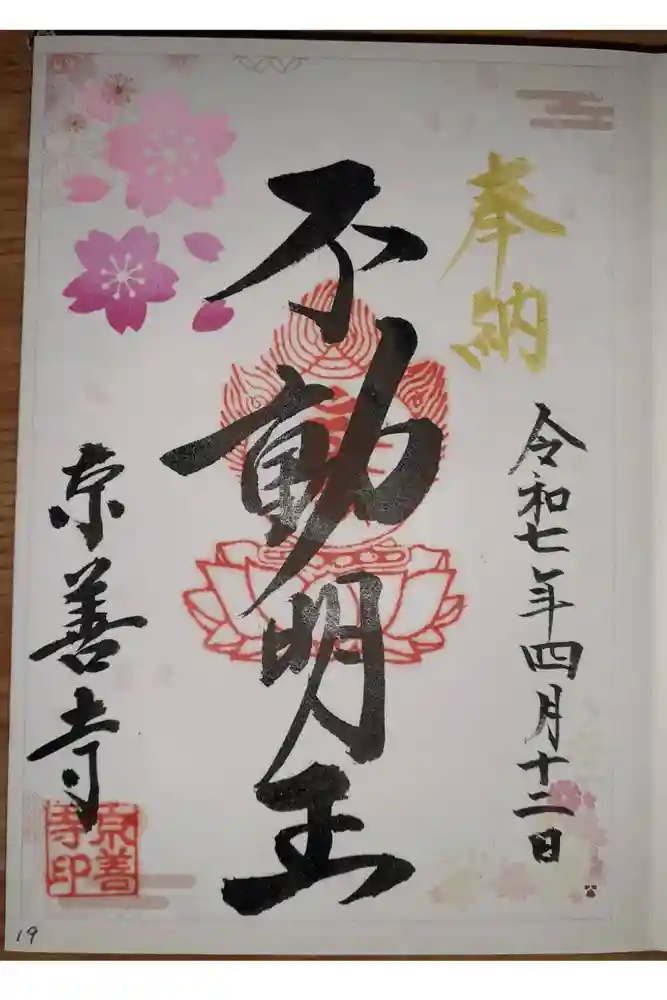 奉納
令和七年四月十二日
不動明王
京善寺
京善寺印
19